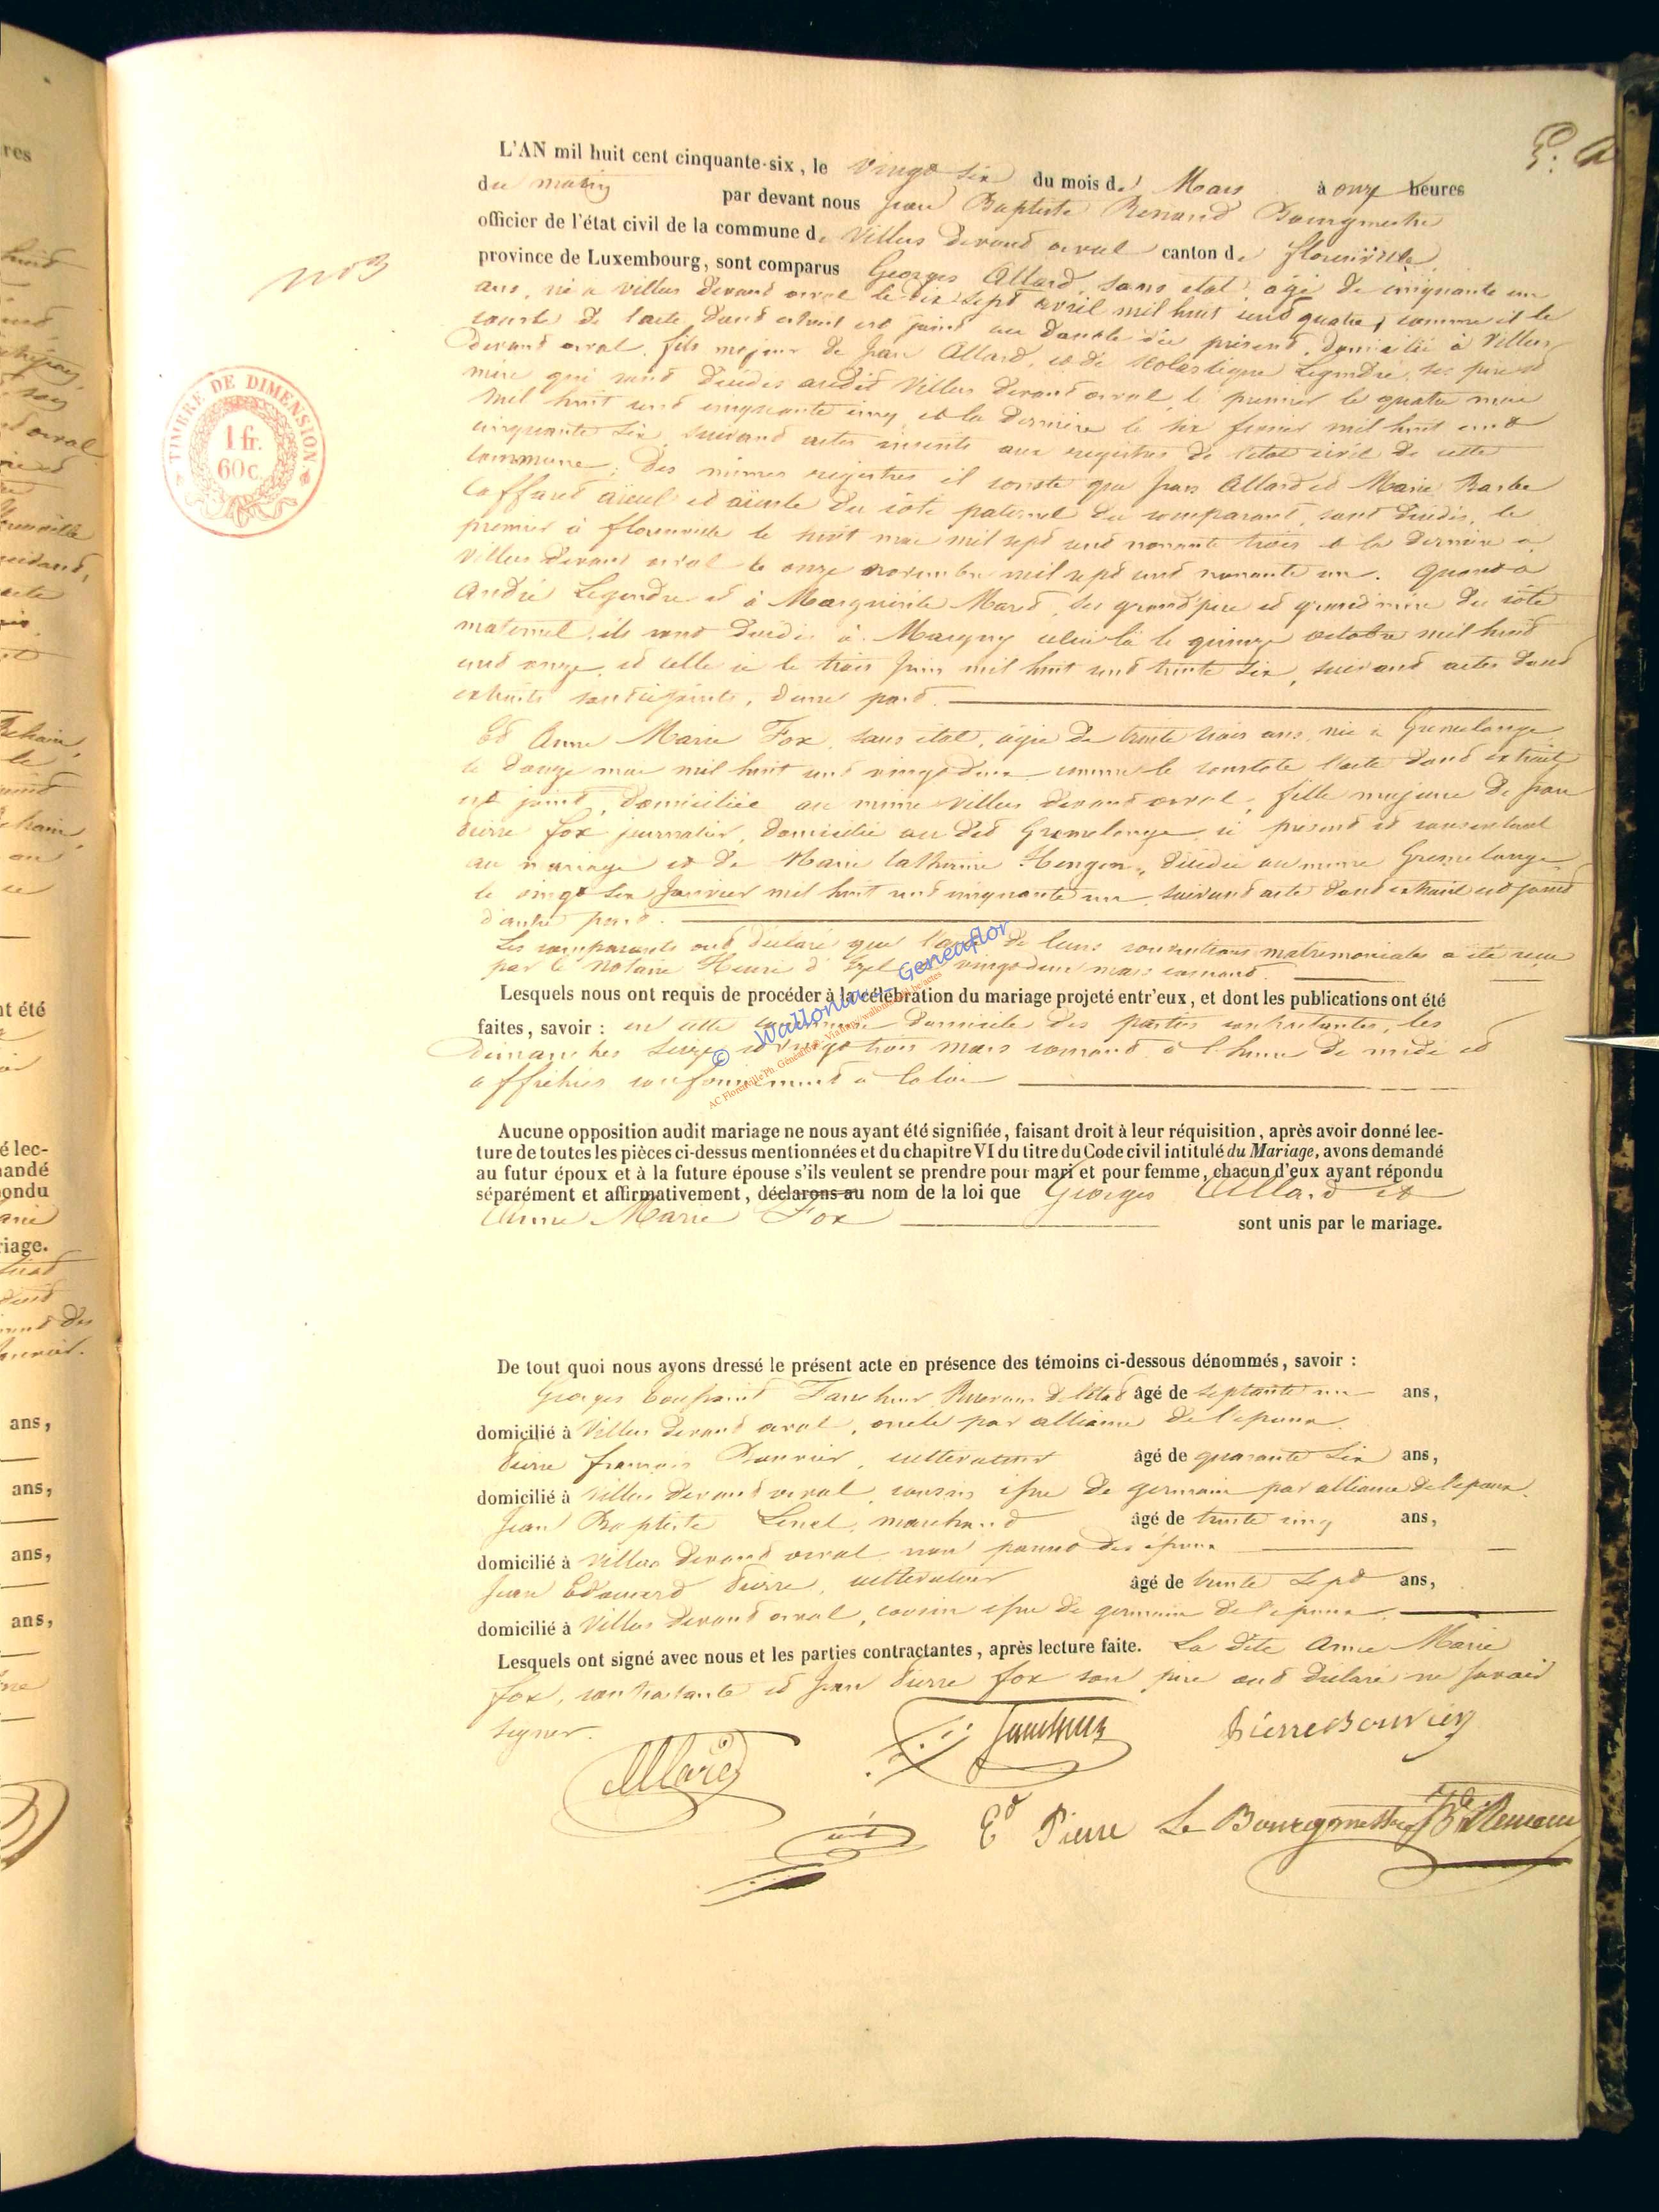 L'AN mil huit cent cinquante-six, le vingt six du mois de Mars à onze heures
du matin par devant nous Jean Baptiste Renaud Bourgmestre
officier de l'état civil de la commune de Villers devant orval canton de florenville
province de Luxembourg, sont comparus Georges Allard, sans état, âgé de cinquante un
ans, né à villers devant orval le dix sept avril mil huit cent quatre, comme il le
conste de l'acte dont extrait est joint au double du présent, domicilié à Villers
devant orval, fils majeur de Jean Allard, et de Scolastique Legendre, ses père et
mère qui sont décédés audit Villers devant orval, le premier le quatre mai
mil huit cent cinquante cinq et la dernière le six fevrier mil huit cent
cinquante six, suivant actes inscrits aux registres de l'état civil de cette
commune; Des mêmes registres il conste que Jean Allard et Marie Barbe
aïeul et aïeule du coté paternel du comparant, sont décédés, le
premier à florenville le huit mai mil sept cent nonante trois et la dernière à
Villers devant orval le onze novembre mil sept cent nonante un. Quant à
André Legendre et à Marguerite Mard, ses grand'père et grand'mère du coté
maternel, ils sont décédés à Margny celui-là le quinze octobre mil huit
cent onze, et celle ci le trois Juin mil huit cent trente six, suivant actes dont
extraits sont ci joints, d'une part.
Et Anne Marie Fox, sans état, âgée de trente trois ans, née à Gremelange
le douze mai mil huit cent vingt deux comme le constate l'acte dont extrait
est joint, domiciliée au même Villers devant orval, fille majeure de Jean
Pierre Fox journalier, domicilié au dit Gremelange, ci présent et consentant
au mariage et de Marie Catherine Hengen, décédée au même Gremelange
le vingt six Janvier mil huit cent cinquante un, suivant acte dont extrait est joint
d'autre part.
Les comparants ont déclaré que l'acte de leurs conventions matrimoniales a été reçu
par le Notaire Henri d'Izel le vingt deux mars courant.
Lesquels nous ont requis de procéder à la célébration du mariage projeté entr'eux, et dont les publications ont été
faites, savoir : en cette commune domicile des parties contractantes, les
Dimanches seize et vingt trois mars courant à l'heure de midi et
affichées conformément à la loi
Aucune opposition audit mariage ne nous ayant été signifiée, faisant droit à leur réquisition, après avoir donné lec-
ture de toutes les pièces ci-dessus mentionnées et du chapitre VI du titre du Code civil intitulé du Mariage, avons demandé
au futur époux et à la future épouse s'ils veulent se prendre pour mari et pour femme, chacun d'eux ayant répondu
séparément et affirmativement, déclarons au nom de la loi que Georges Allard et
Anne Marie Fox sont unis par le mariage.
De tout quoi nous ayons dressé le présent acte en présence des témoins ci-dessous dénommés, savoir :
Georges Toussaint de l'état âgé de septante un ans,
domicilié à Villers devant orval, oncle par alliance de l'époux
Pierre françois Bouvier, cultivateur âgé de quarante six ans,
domicilié à Villers devant orval, cousin issu de germain par alliance de l'époux.
Jean Baptiste marchand âgé de trente cinq ans,
domicilié à Villers devant orval, non parent des époux
Jean Edouard Pierre, cultivateur âgé de trente sept ans,
domicilié à Villers devant orval, cousin issu de germain de l'époux.
Lesquels ont signé avec nous et les parties contractantes, après lecture faite. La dite Anne Marie
Fox, contractante et Jean Pierre fox son père ont déclaré ne savoir
signer.
Allard
Pierre Bouvier
Ed Pierre Le Bourgmestre
N° 3
TIMBRE DE DIMENSION
1 fr.
60c.
© Wallonia - Geneaflor